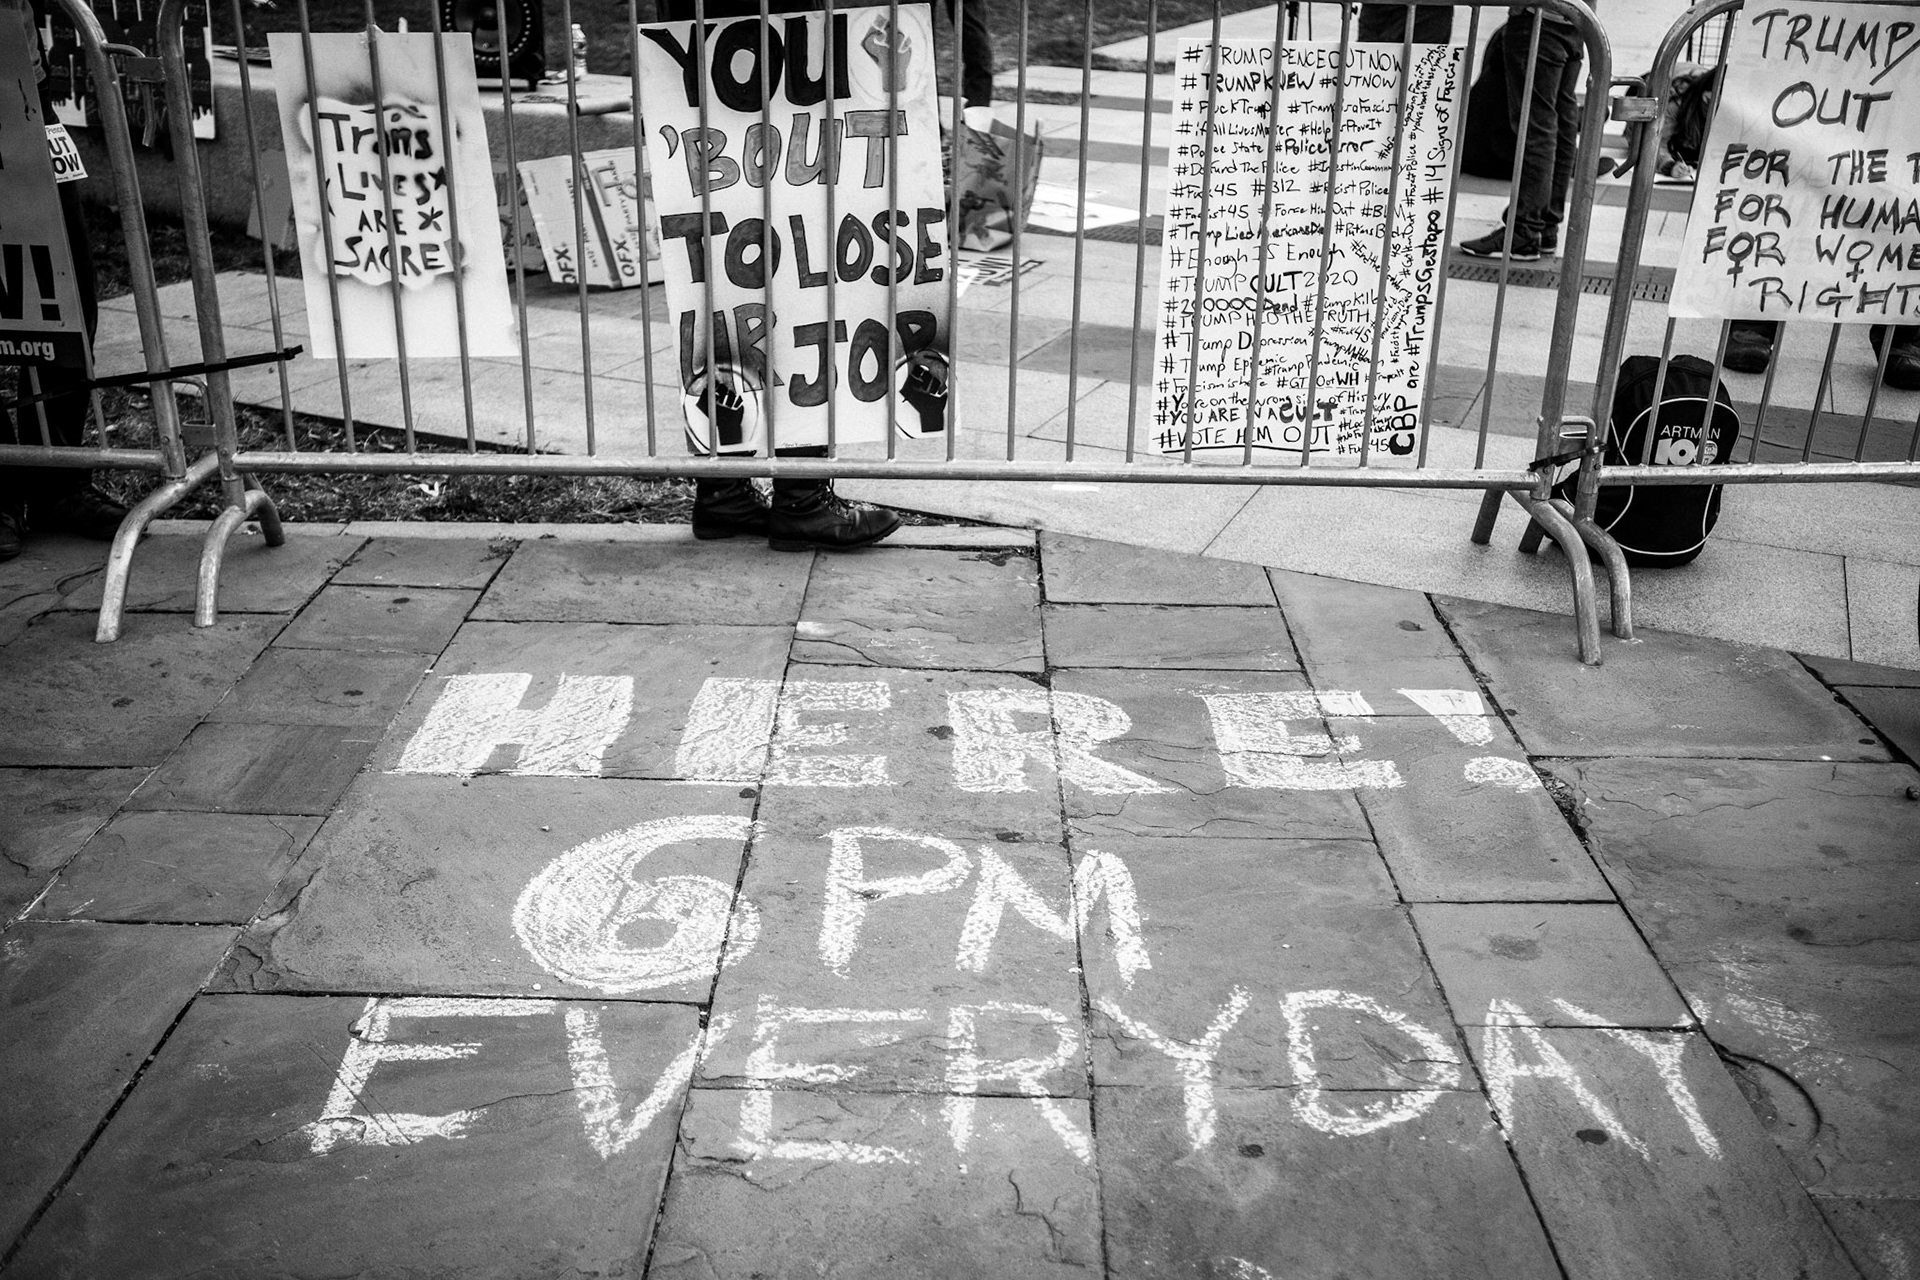 OUT
NOW
W!
m.org
Trans
LIVES
ARE
SACRED
OFX
OFX
YOU
'BOUT
TO LOSE
UR JOB
#TRUMPPENCEOUTNOW
#TRUMPKNEW #OUTNOW
#FuckTrump #TrumpIsaFascist
#ifAllLivesMatter #HelpUsProveIt
#Police State #PoliceTerror
#Defund The Police
#Fuck45 #B12 #RacistPolice
#Fascist45 #ForceHimOut #BLM
#Trump Lied AmericansDied
#Enough IS Enough
#TRUMPCULT2020
#200000Dead #TrumpKills
#TRUMP H8 THE TRUTH
#Trump Depression
#Trump Epidemic #TrumpPandemic
#Fascismishere #GTFOutWH
#You're on the wrong side of History
#YOU ARE IN A CULT
#VOTE HIM OUT
#Fuck45
CBP are #TrumpsGestapo #14 Signs of Fascism
TRUMP/
OUT
FOR THE
FOR HUMA
FOR WOME
RIGHTS
ARTMAN
HERE!
6PM
EVERYDAY